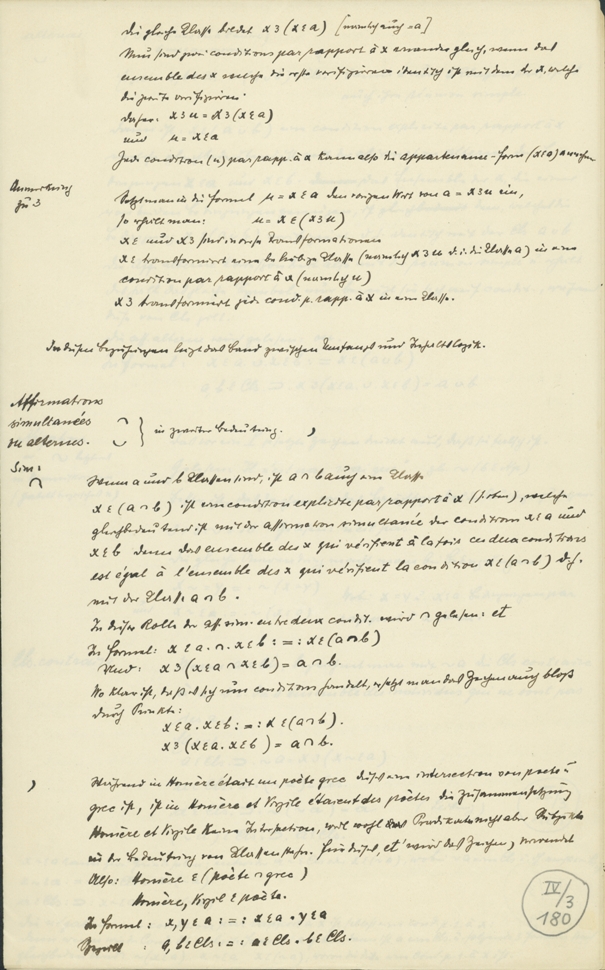 die gleiche Classe bildet x ∋ (x ε a) [nämlich auch = a]
Nun sind zwei conditions par rapport à x einander gleich, wenn das
ensemble des x welche die erste verifizieren identisch ist mit dem der x, welche
die zweite verifizieren.
daher: x ∋ u = x ∋ (x ε a)
und u = x ε a
Jede condition (u) par rapp. à x kann also die appartenance-form (x ε a) annehmen
Anmerkung
zu ∋
Setzt man in die Formel u = x ε a den vorigen Wert von a = x ∋ u ein,
so erhält man: u = x ε (x ∋ u)
x ε und x ∋ sind inverse Transformationen
x ε transformiert eine beliebige Classe (nämlich x ∋ u d.i. die Classe a) in eine
condition par rapport à x (nämlich u)
x ∋ transformiert jede cond. p. rapp. à x in eine Classe.
In diesen Beziehungen liegt das Band zwischen Umfangs und Inhaltslogik.
Affirmations
simultanées
ou alternes.
∩
∪ } in zweiter Bedeutung. ,
Sim:
∩
Wenn a und b Classen sind, ist a ∩ b auch eine Classe
x ε (a ∩ b) ist eine condition explicite par rapport à x (oben), welche
gleichbedeutend ist mit der affirmation simultanée der conditions x ε a und
x ε b denn das ensemble des x qui vérifient à la fois ces deux conditions
est égal à l'ensemble des x qui vérifient la condition x ε (a ∩ b) d.h.
mit der Classe a ∩ b.
In dieser Rolle der aff. sim. entre deux condit. wird ∩ gelesen: et
In Formel: x ε a . ∩ . x ε b : = : x ε (a ∩ b)
Und: x ∋ (x ε a ∩ x ε b) = a ∩ b.
Wo klar ist, daß es sich um conditions handelt, ersetzt man das Zeichen auch bloß
durch Punkte:
x ε a . x ε b : = : x ε (a ∩ b).
x ∋ (x ε a . x ε b) = a ∩ b.
,
Während in Homère était un poète grec dieses eine intersection von poète ∩
grec ist, ist in Homère et Virgile étaient des poètes die Zusammensetzung
Homère et Virgile keine Intersection, weil wohl das Prädikat nicht aber Subjekte
in der Bedeutung von Classen stehn. Für dieses 'et' wird das Zeichen , verwendet
Also: Homère ε (poète ∩ grec)
Homère, Virgile ε poète.
In Formel: x, y ε a : = : x ε a . y ε a
: a, b ε Cls : = : a ε Cls . b ε Cls.
IV/3
180